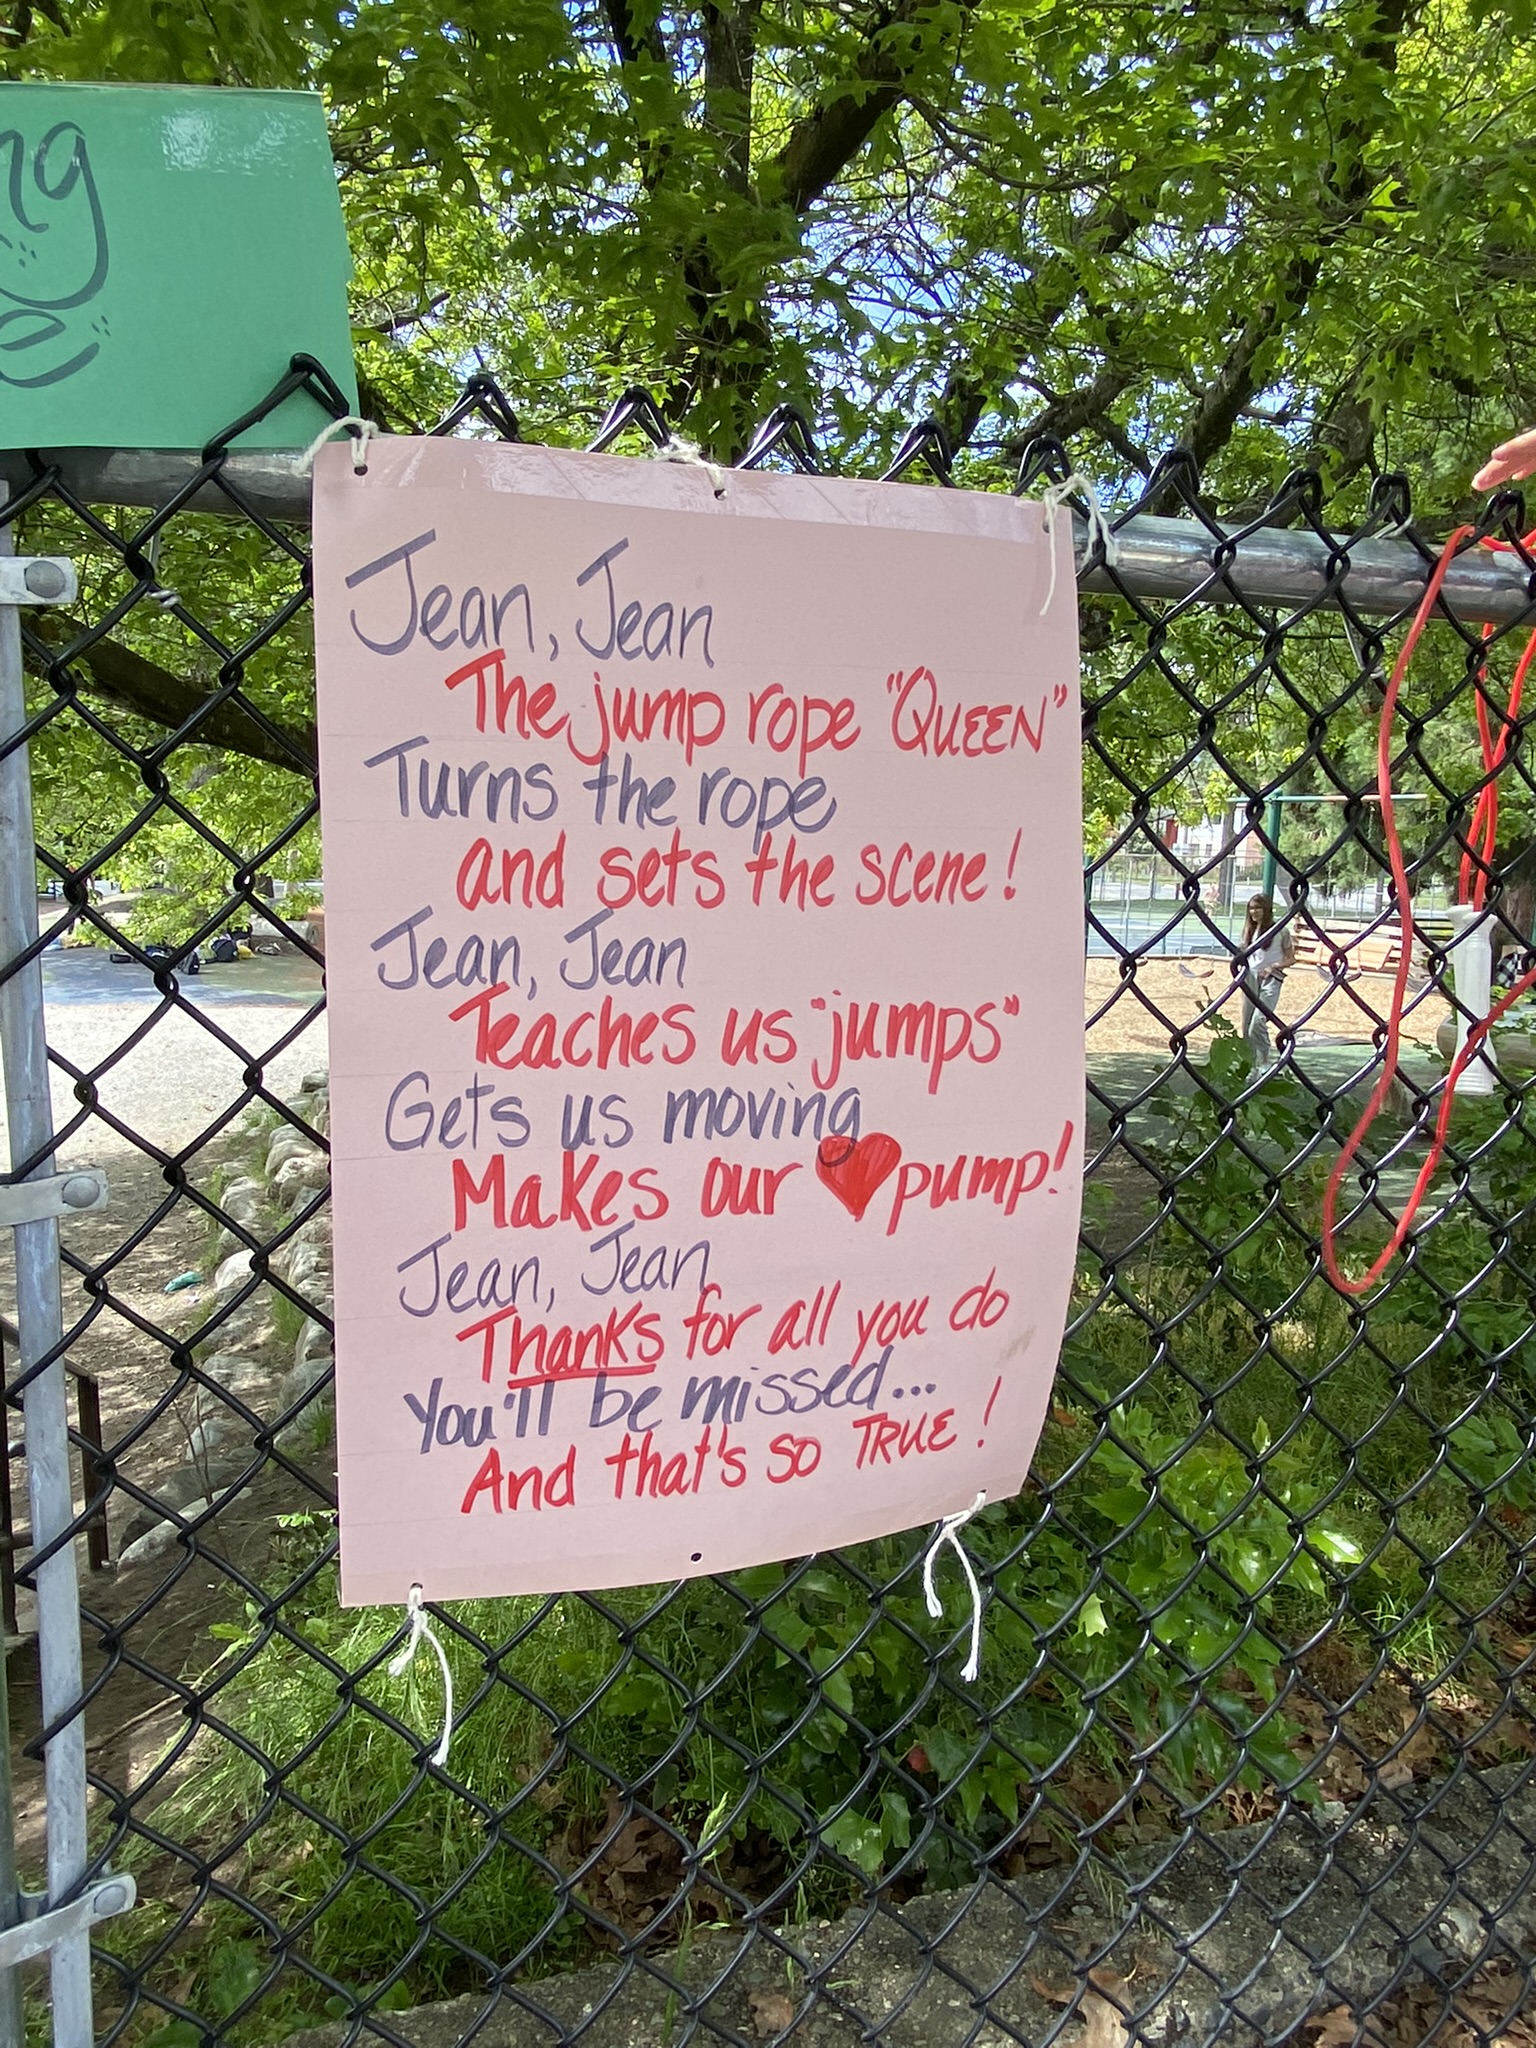 Jean, Jean
The jump rope "QUEEN"
Turns the rope
and sets the scene!
Jean, Jean
Teaches us "jumps"
Gets us moving
Makes our ♥ pump!
Jean, Jean
Thanks for all you do
You'll be missed...
And that's so TRUE!